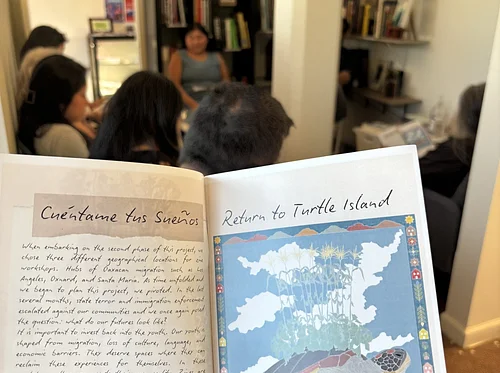 Cuéntame tus Sueños
When embarking on the second phase of this project, we
chose three different geographical locations for our
workshops. Hubs of Oaxacan migration such as Los
Angeles, Oxnard, and Santa Maria. As time unfolded and
we began to plan this project, we pivoted. In the last
several months, state terror and immigration enforcement
escalated against our communities and we once again posed
the question: what do our futures look like?
It is important to invest back into the youth. Our youth is
shaped from migration, loss of culture, language, and
economic barriers. They deserve spaces where they can
reclaim these experiences for themselves. In these
Return to Turtle Island